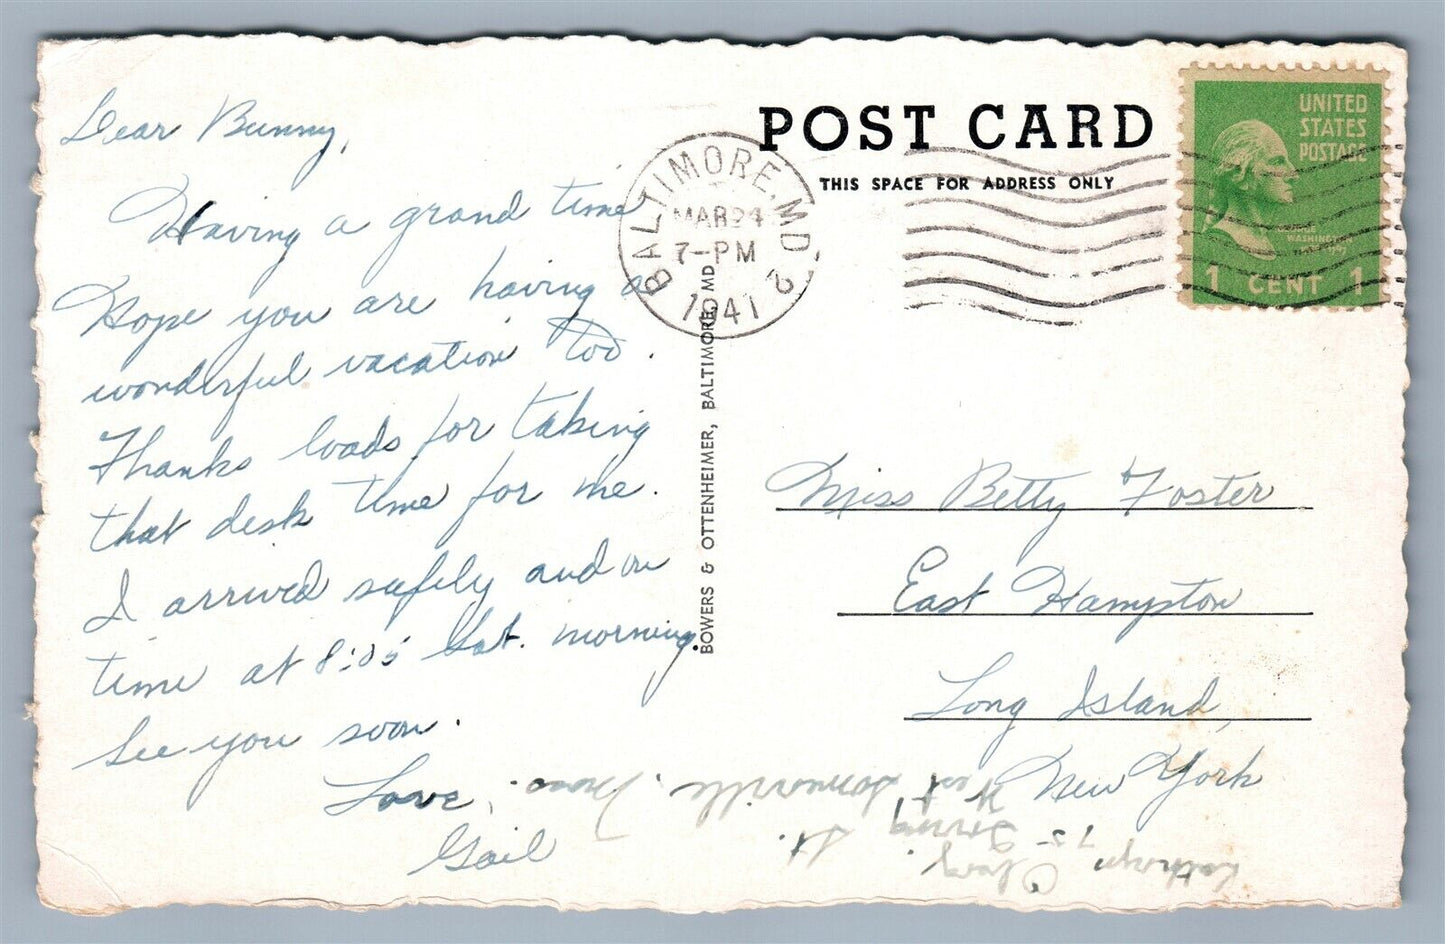 Dear Bunny,
Having a grand time
Hope you are having a
wonderful vacation too.
Thanks loads for taking
that desk time for me.
I arrived safely and on
time at 8:05 Sat. morning.
See you soon.
Love,
Gail
POST CARD
THIS SPACE FOR ADDRESS ONLY
BALTIMORE, MD. 2
MAR 24
7-PM
1941
UNITED
STATES
POSTAGE
WASHINGTON
1 CENT 1
BOWERS & OTTENHEIMER, BALTIMORE, MD
Miss Betty Foster
East Hampton
Long Island,
New York
Kathryn
75 Irving St.
West Somerville, Mass.